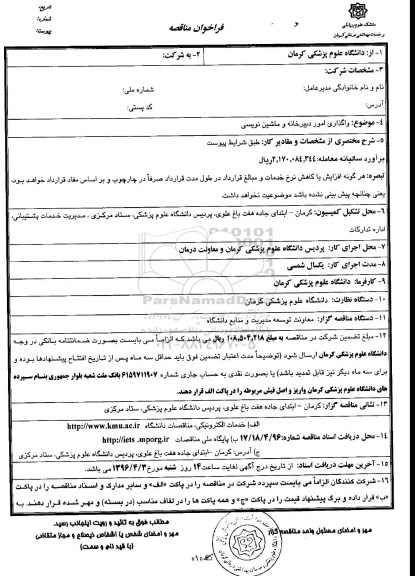 تاریخ:
شماره:
پیوست:
فراخوان مناقصه
دانشگاه علوم پزشکی
و خدمات بهداشتی درمانی کرمان
۱- از: دانشگاه علوم پزشکی کرمان
۲- به شرکت:
۳- مشخصات شرکت:
نام و نام خانوادگی مدیرعامل:
شماره ملی:
آدرس:
کد پستی:
۴- موضوع: واگذاری امور دبیرخانه و ماشین نویسی
۵- شرح مختصری از مشخصات و مقادیر کار: طبق شرایط پیوست
برآورد سالیانه معامله: ۲,۱۷۰,۰۸۴,۳۴۴ریال
تبصره: هر گونه افزایش یا کاهش نرخ خدمات و مبالغ قرارداد در طول مدت قرارداد صرفاً در چارچوب و بر اساس مفاد قرارداد خواهد بود.
یعنی چنانچه پیش بینی نشده باشد موضوعیت نخواهد داشت.
۶- محل تشکیل کمیسیون: کرمان – ابتدای جاده هفت باغ علوی، پردیس دانشگاه علوم پزشکی، ستاد مرکزی ، مدیریت خدمات پشتیبانی،
اداره تدارکات
۷- محل اجرای کار: پردیس دانشگاه علوم پزشکی کرمان و معاونت درمان
۸- مدت اجرای کار: یکسال شمسی
۹- کارفرما: دانشگاه علوم پزشکی کرمان
۱۰- دستگاه نظارت: دانشگاه علوم پزشکی کرمان
۱۱- دستگاه مناقصه گزار: معاونت توسعه مدیریت و منابع دانشگاه
۱۲- مبلغ تضمین شرکت در مناقصه به مبلغ ۱۰۸,۵۰۴,۲۱۸ ریال می باشد که الزاماً می بایست بصورت ضمانتنامه بانکی در وجه
دانشگاه علوم پزشکی کرمان ارسال شود (توضیحاً مدت اعتبار تضمین فوق باید حداقل سه ماه پس از تاریخ افتتاح پیشنهادها بوده و
برای سه ماه دیگر نیز قابل تمدید باشد) یا بصورت نقدی به حساب جاری شماره ۶۱۵۹۷۱۱۹۰۷ بانک ملت شعبه بلوار جمهوری بنام سپرده
های دانشگاه علوم پزشکی کرمان واریز و اصل فیش مربوطه را در پاکت الف قرار دهند.
۱۳- نشانی مناقصه گزار: کرمان – ابتدای جاده هفت باغ علوی، پردیس دانشگاه علوم پزشکی، ستاد مرکزی
الف) خدمات الکترونیکی، مناقصات دانشگاه http://www.kmu.ac.ir
۱۴- محل دریافت اسناد مناقصه شماره: ۱۷/۱۸/۴/۹۶ ب) پایگاه ملی مناقصات http://iets.mporg.ir
ج) آدرس: کرمان – ابتدای جاده هفت باغ علوی، پردیس دانشگاه علوم پزشکی، ستاد مرکزی
۱۵- آخرین مهلت دریافت اسناد: از تاریخ درج آگهی لغایت ساعت ۱۴ روز شنبه مورخ ۱۳۹۶/۴/۳ می باشد.
۱۶- شرکت کنندگان الزاماً می بایست سپرده شرکت در مناقصه را در پاکت «الف» و سایر مدارک و اسناد مناقصه را در پاکت
«ب» قرار داده و برگ پیشنهاد قیمت را در پاکت «ج» و همه پاکت ها را در لفاف مناسب (در بسته) و مهر شده قرار دهند. به
مهر و امضای مسئول واحد مناقصه گزار
مطالب فوق به تائید و رویت اینجانب رسید.
مهر و امضای شخص یا اشخاص ذیصلاح و مجاز متقاضی
(با قید نام و سمت)